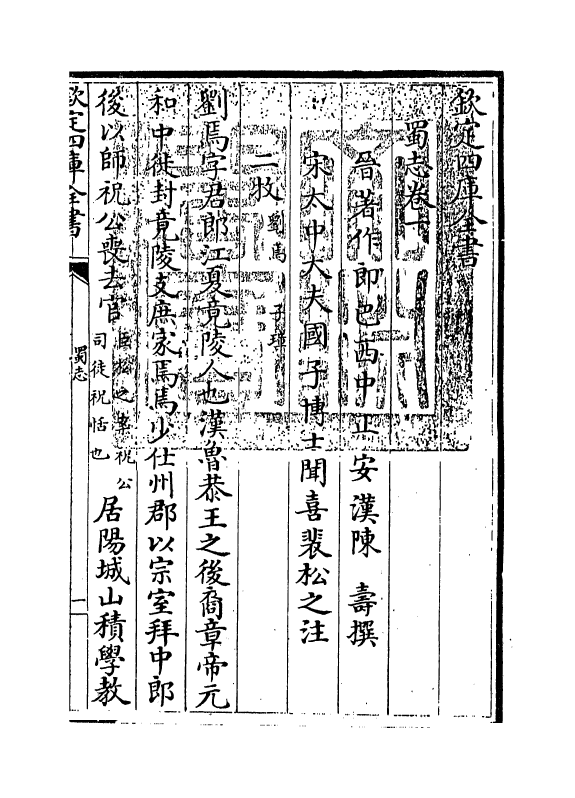 欽定四庫全書
蜀志卷一
晉著作郎巴西中正安漢陳壽撰
宋太中大夫國子博士聞喜裴松之注
二牧劉焉 子璋
劉焉字君郎江夏竟陵人也漢魯恭王之後裔章帝元
和中徙封竟陵支庶家焉焉少仕州郡以宗室拜中郎
後以師祝公喪去官臣松之案祝公
司徒祝恬也
居陽城山積學教
欽定四庫全書
蜀志
一